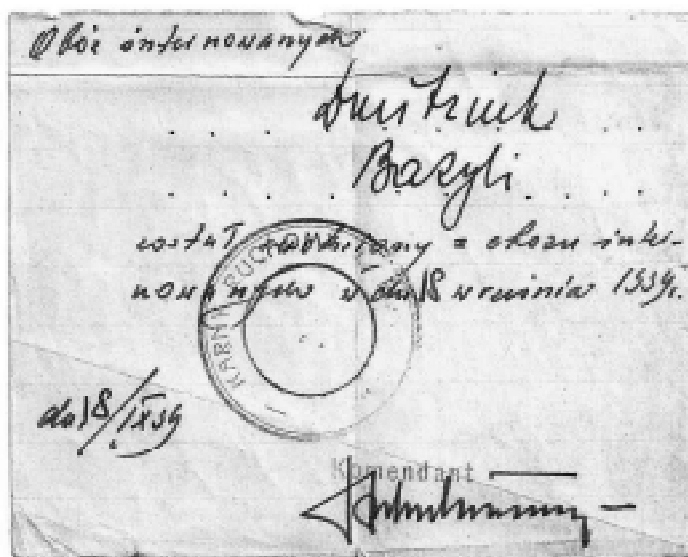 Obóz internowanych
Dmitriuk
Bazyli
został zwolniony z obozu inter-
nowanych w dn. 18 września 1939r.
dn 18/IX 39
Komendant